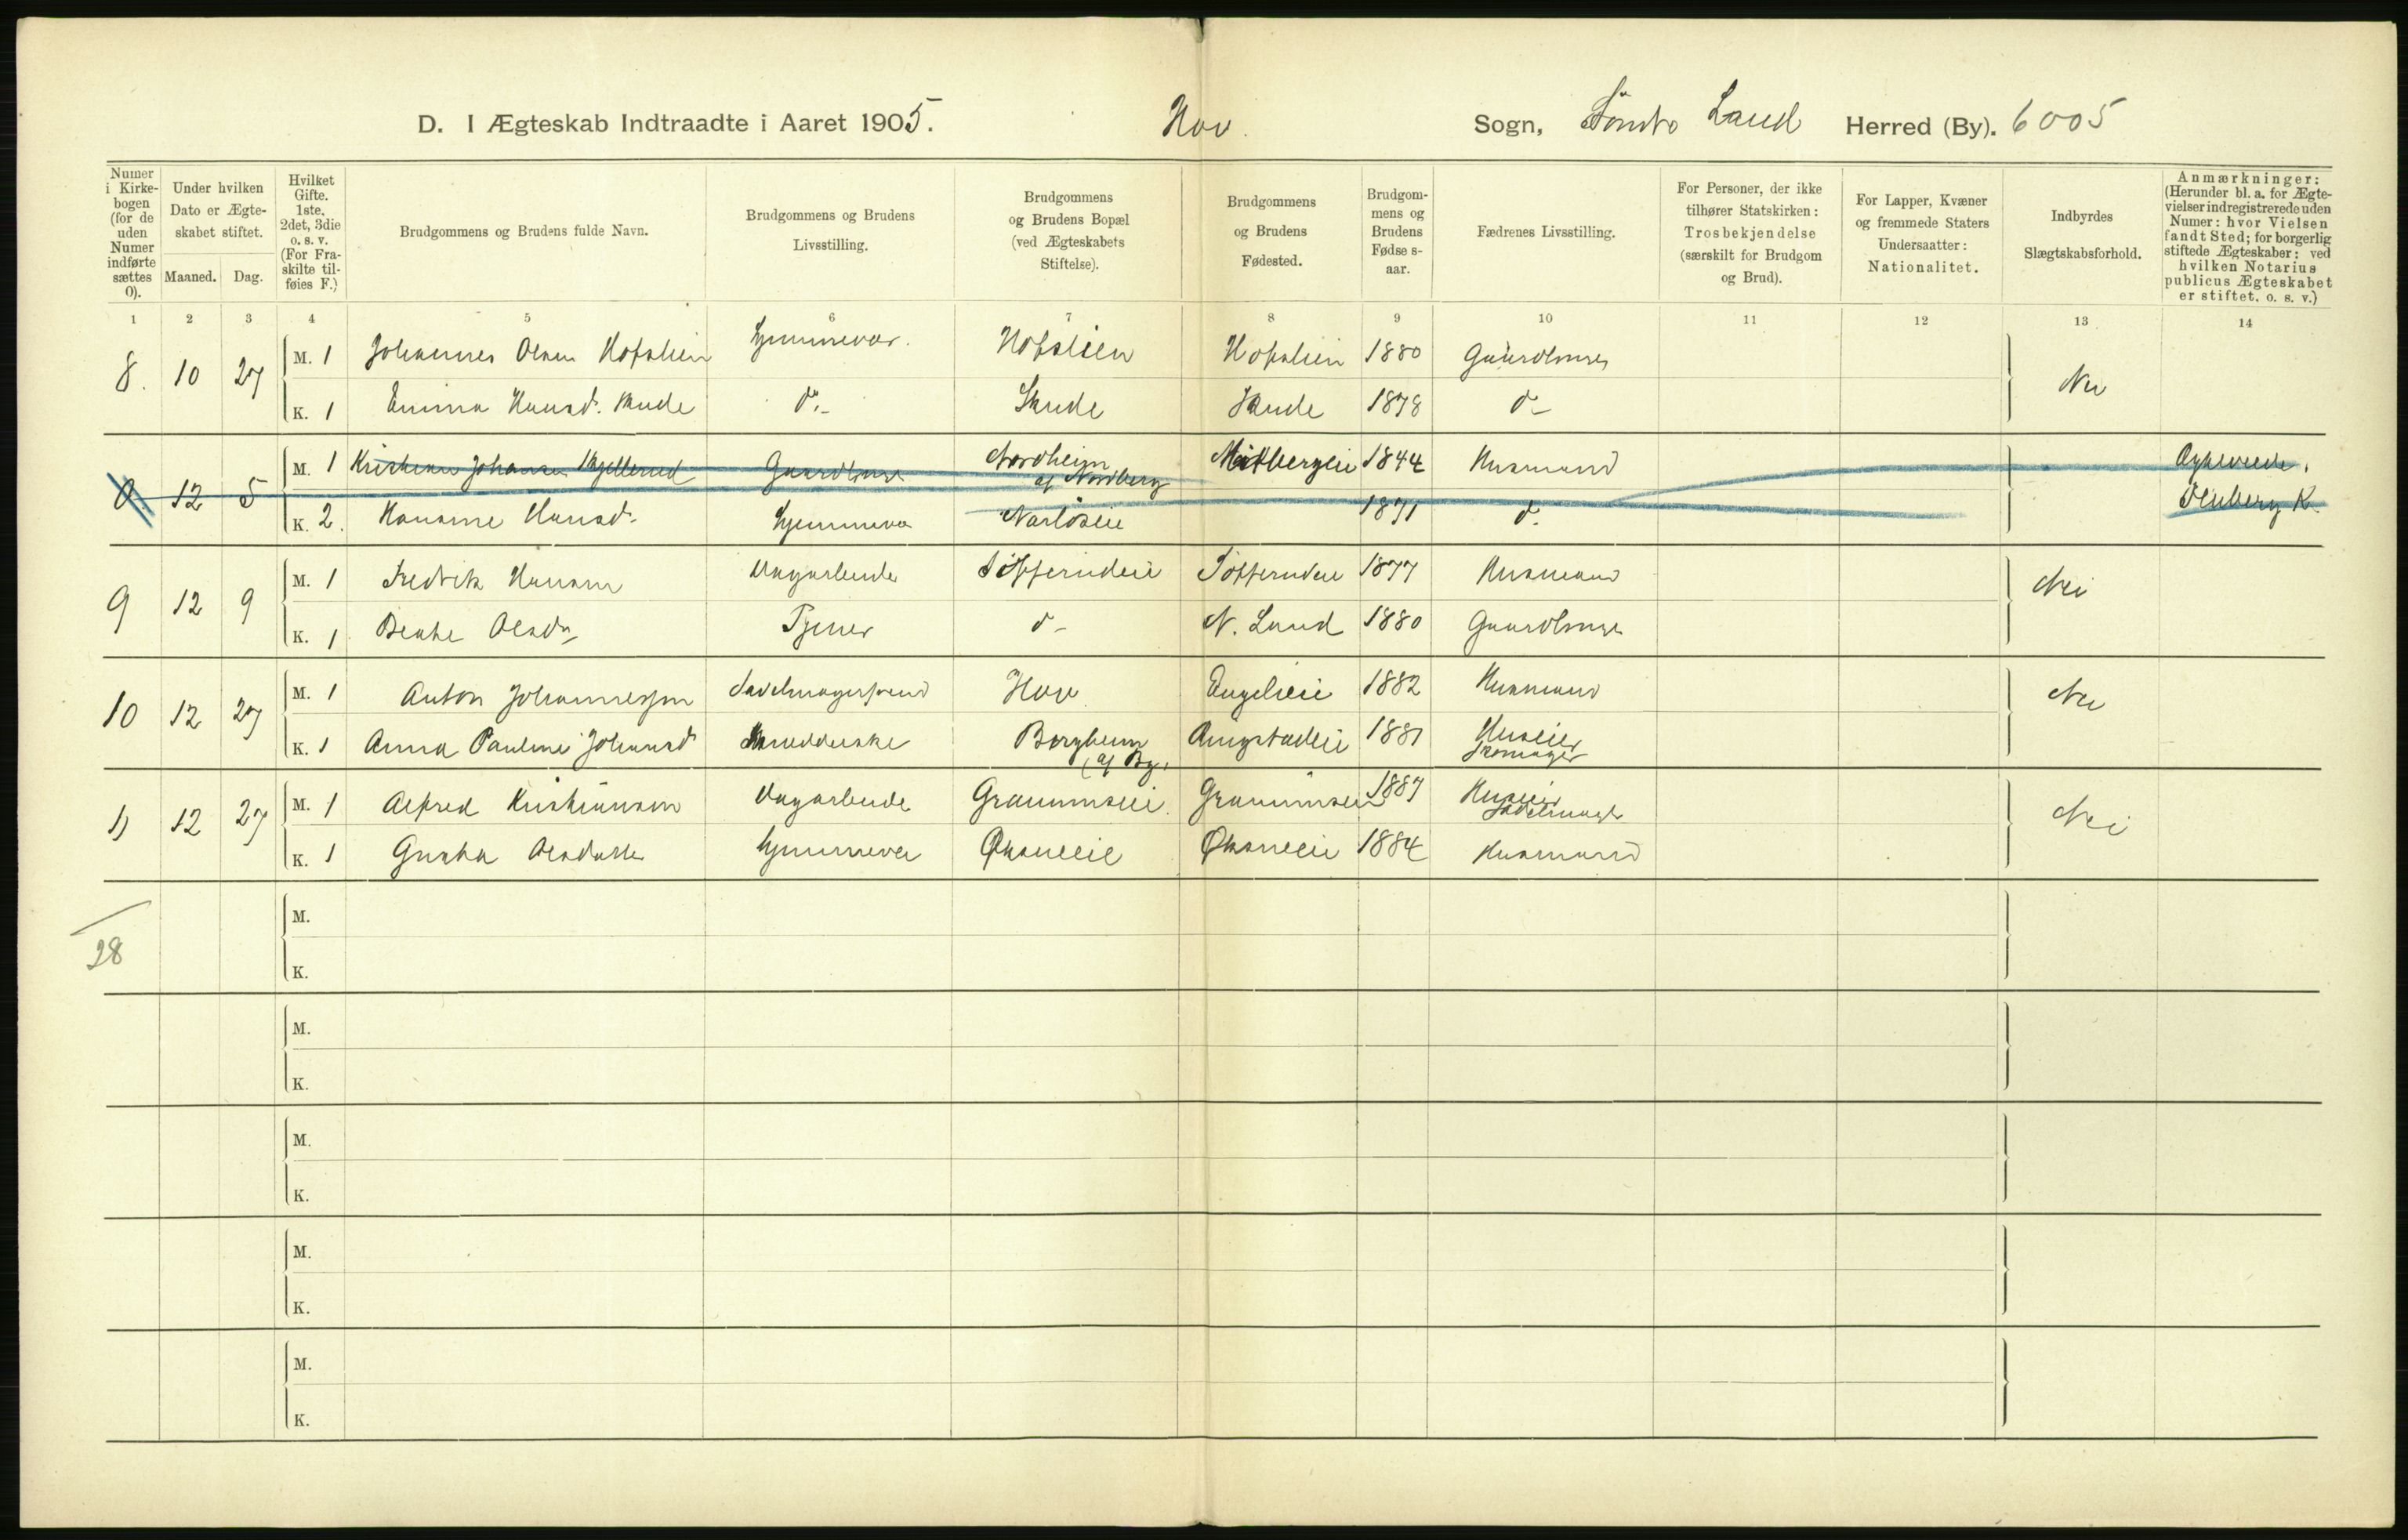 D. I Ægteskab Indtraadte i Aaret 1905. Hov. Sogn, Søndre Land Herred (By). 6005
Numer i Kirkebogen (for de uden Numer indførte sættes 0).
Under hvilken Dato er Ægteskabet stiftet.
Maaned. Dag.
Hvilket Gifte. 1ste, 2det, 3die o. s. v. (For Fraskilte tilføies F.)
Brudgommens og Brudens fulde Navn.
Brudgommens og Brudens Livsstilling.
Brudgommens og Brudens Bopæl (ved Ægteskabets Stiftelse).
Brudgommens og Brudens Fødested.
Brudgommens og Brudens Fødse s-aar.
Fædrenes Livsstilling.
For Personer, der ikke tilhører Statskirken: Trosbekjendelse (særskilt for Brudgom og Brud).
For Lapper, Kvæner og fremmede Staters Undersaatter: Nationalitet.
Indbyrdes Slægtskabsforhold.
Anmærkninger: (Herunder bl. a. for Ægtevielser indregistrerede uden Numer: hvor Vielsen fandt Sted; for borgerlig stiftede Ægteskaber: ved hvilken Notarius publicus Ægteskabet er stiftet, o. s. v.)
1 2 3 4 5 6 7 8 9 10 11 12 13 14
8. 10 27 M. 1 Johannes Olsen Hofslien hjemmevær. Hofslien Hofslien 1880 Gaardbruger Nei
K. 1 Emma Hansd. Skude do.- Skude Skude 1878 do-
0 12 5 M. 1 Kristian Johansen Gaardbruger Nordheim af Nordberg 1844 Husmand
K. 2. Hansd. hjemmevær 1871 do.
9 12 9 M. 1 Fredrik Hansen Dagarbeider Husmand 1877 Nei
K. 1 Beate Olsdr Tjener do- N. Land 1880 Gaardbruger
10 12 27 M. 1 Anton Johannessen Sadelmagersvend Hov Engelieie 1882 Husmand Nei
K. 1 Anna Pauline Johansd Skrædderske Borgheim (af By) 1881 Huseier Skomager
11 12 27 M. 1 Alfred Kristiansen Dagarbeider Graumseie. Graumseie 1887 Huseier Sadelmager Nei
K. 1 Gusta Olsdatter hjemmevær 1884 Husmand
M.
K.
28
M.
K.
M.
K.
M.
K.
M.
K.